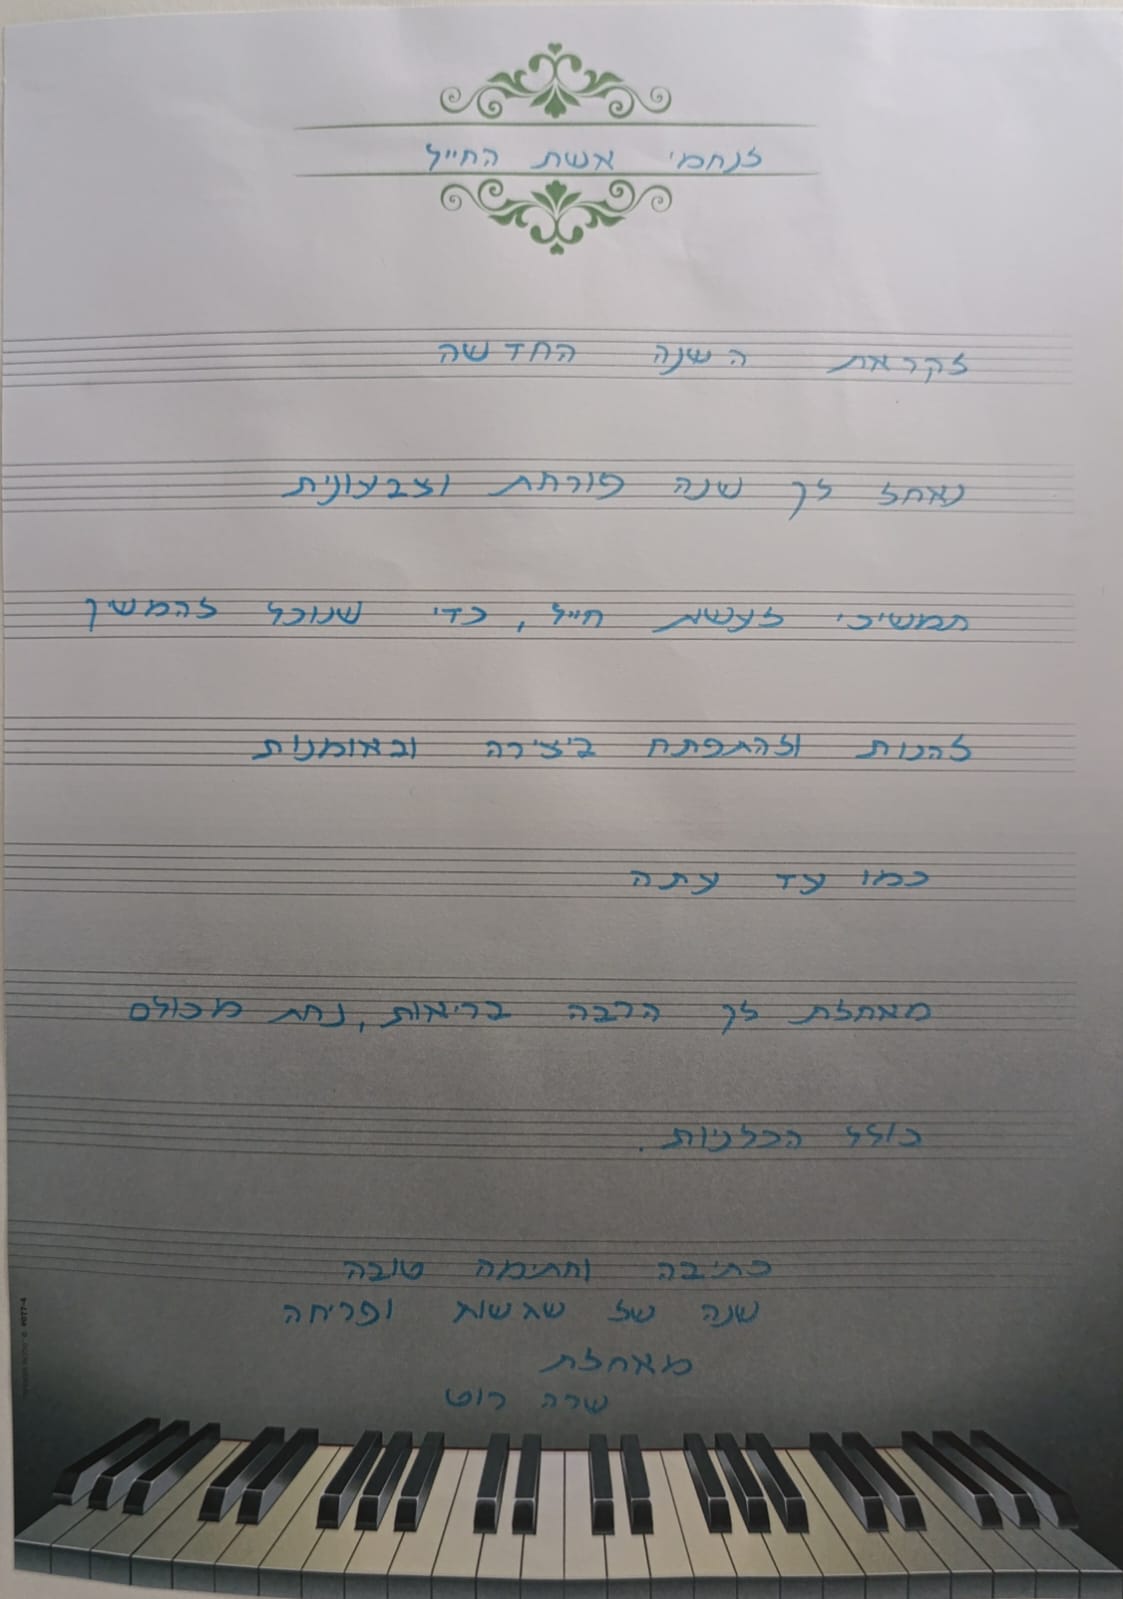 לנחמי אשת החייל
לקראת השנה החדשה
נאחל לך שנה פורחת וצבעונית
תמשיכי לעשות חייל, כדי שנוכל להמשך
להנות ולהתפתח ביצירה ובאומנות
כמו עד עתה
מאחלת לך הרבה בריאות, נחת מכולם
כולל הכלניות.
כתיבה וחתימה טובה
שנה של ופריחה
מאחלת
שרה רוט